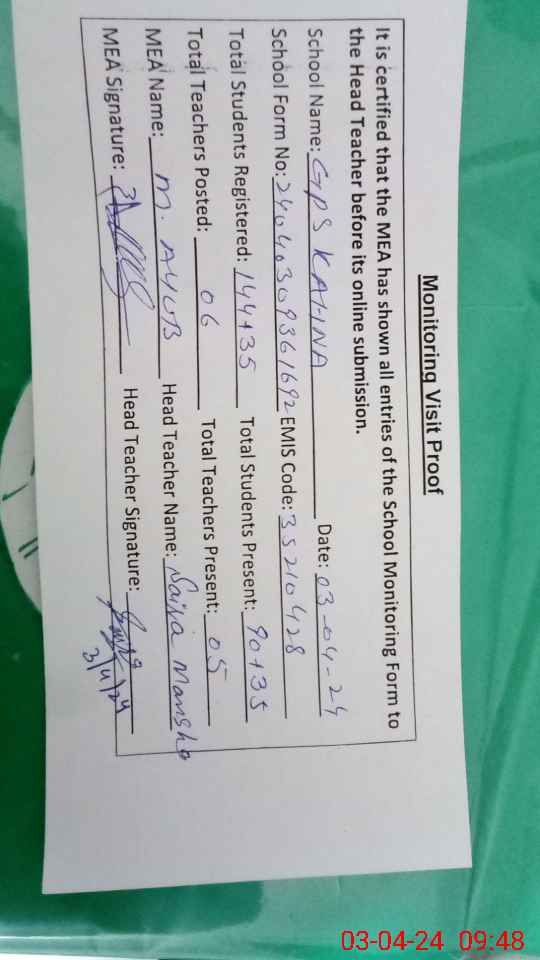 Monitoring Visit Proof
It is certified that the MEA has shown all entries of the School Monitoring Form to
the Head Teacher before its online submission.
School Name: GPS KAHNA Date: 03-04-24
School Form No: 24040309361692 EMIS Code: 35210428
Total Students Registered: 144+35 Total Students Present: 90+35
Total Teachers Posted: 06 Total Teachers Present: 05
MEA Name: M. AYUB Head Teacher Name: Saira
MEA Signature: Head Teacher Signature:
3/4/24
03-04-24 09:48